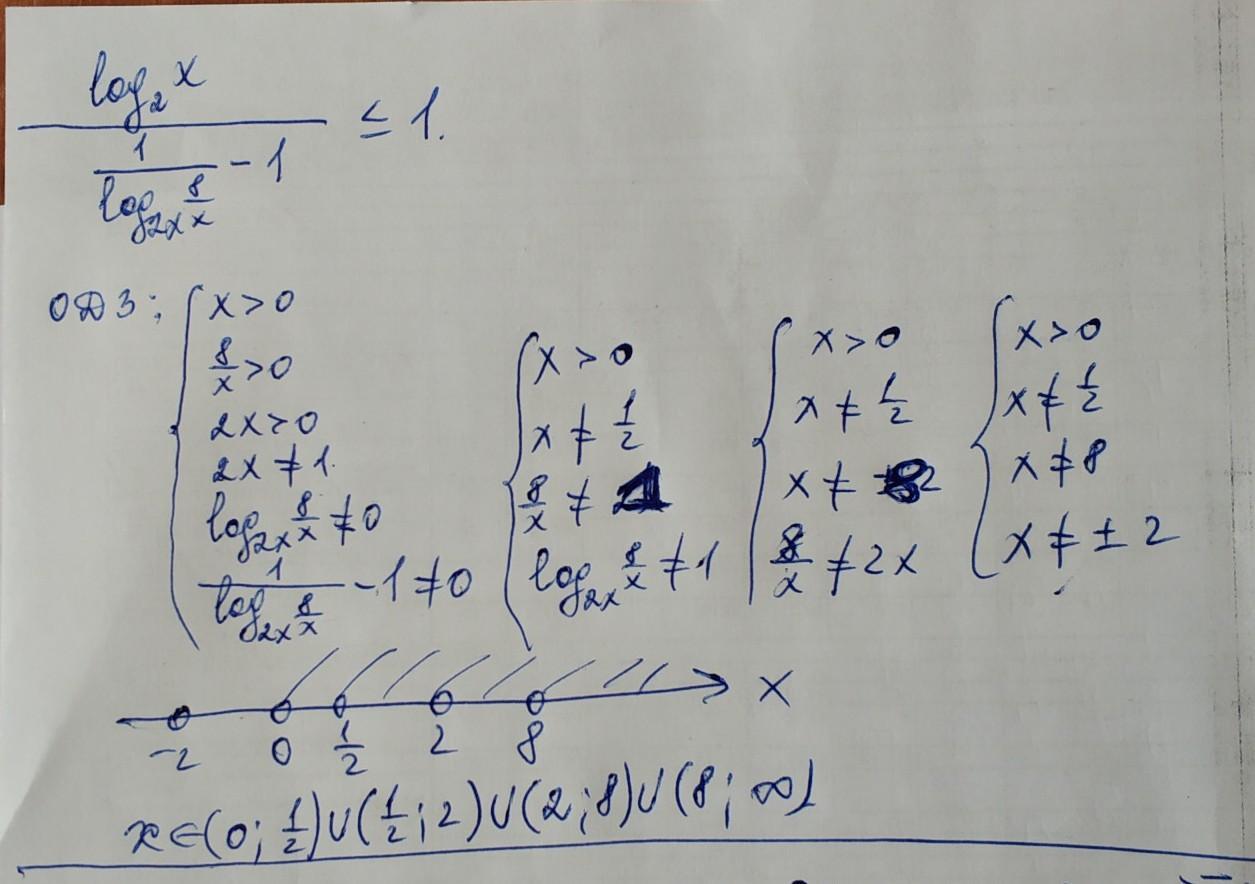 log₂x / (1/(log₂ₓ 8/x) - 1) ≤ 1.
ОДЗ:
{ x > 0
8/x > 0
2x > 0
2x ≠ 1.
log₂ₓ 8/x ≠ 0
1/(log₂ₓ 8/x) - 1 ≠ 0
{ x > 0
x ≠ 1/2
8/x ≠ 1
log₂ₓ 8/x ≠ 1
{ x > 0
x ≠ 1/2
x ≠ 8
8/x ≠ 2x
{ x > 0
x ≠ 1/2
x ≠ 8
x ≠ ± 2
x
-2 0 1/2 2 8
x ∈ (0; 1/2) ∪ (1/2; 2) ∪ (2; 8) ∪ (8; ∞)